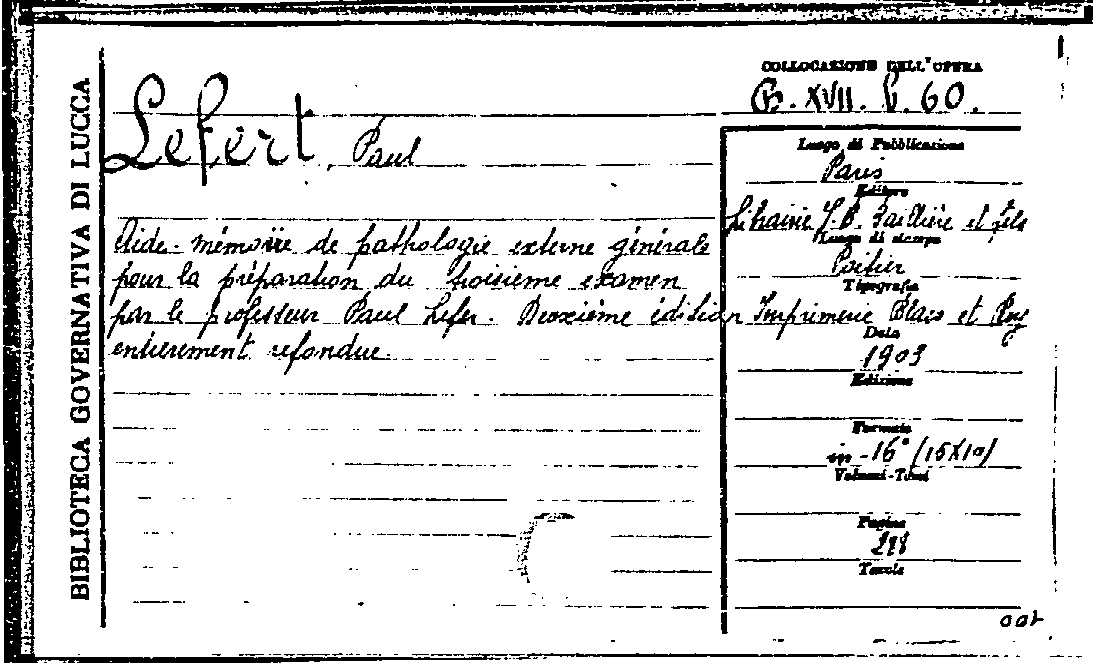 BIBLIOTECA GOVERNATIVA DI LUCCA
COLLOCAZIONE DELL'OPERA
B. XVII. b. 60.
Lefert, Paul
Aide-mémoire de pathologie externe générale
pour la préparation du troisieme examen
par le professeur Paul Lefer. Deuxième édition
entierement refondue.
Luogo di Pubblicazione
Paris
Editore
Librairie J.-B. Baillière et fils
Luogo di stampa
Poitier
Tipografia
Imprimerie Blais et Roy
Data
1903
Edizione
Formato
in-16° (15X10)
Volumi-Tomi
Pagine
298
Tavole